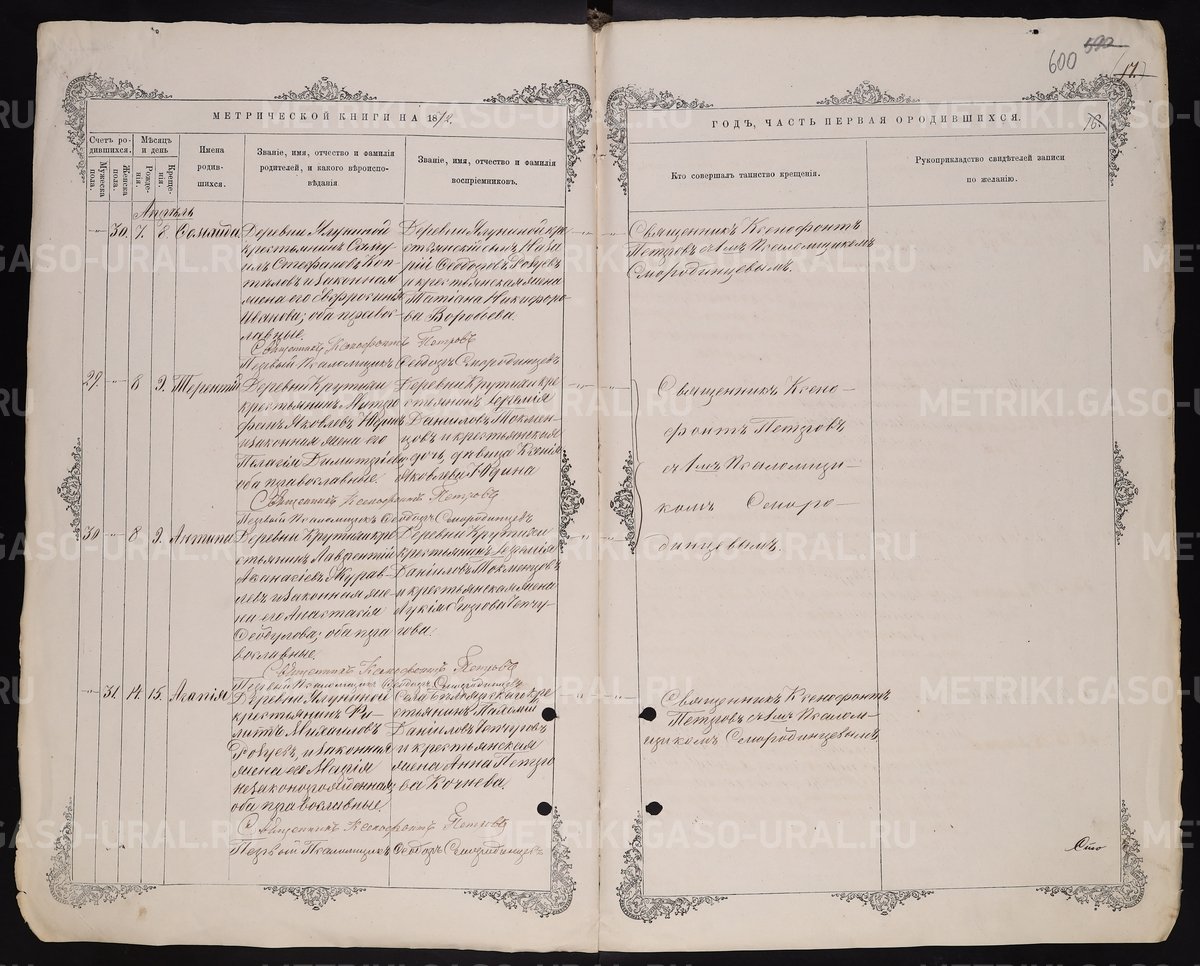 600
17.
МЕТРИЧЕСКОЙ КНИГИ НА 18
ГОДЪ, ЧАСТЬ ПЕРВАЯ О РОДИВШИХСЯ.
Счетъ ро-
дившихся.
Мѣсяцъ
и день
Имена
родив-
шихся.
Званіе, имя, отчество и фамилія
родителей, и какого вѣроиспо-
вѣданія
Званіе, имя, отчество и фамилія
воспріемниковъ.
Кто совершалъ таинство крещенія.
Рукоприкладство свидѣтелей записи
по желанію.
Мужеска
пола.
Женска
пола.
Рожде-
нія.
Креще-
нія.
Апрѣль
30 7. 8.
Деревни
крестьянинъ
Стефановъ Коп-
тѣловъ и законная
жена его Евфросинія
Иванова; оба правос-
лавные.
Деревни
стьянскій сынъ Наза-
рій Ѳеодоровъ
и крестьянская жена
Татіана Никифоро-
ва Воробьева.
Священникъ Ксенофонтъ
Петровъ съ 1мъ Псаломщикомъ
Смородинцевымъ.
Священникъ Ксенофонтъ Петровъ
Первый Псаломщикъ Ѳеодоръ Смородинцевъ
29. 8 9. Терентій
Деревни Крутихи
крестьянинъ Митро-
фанъ Яковлевъ
и законная жена его
Пелагія Димитріева;
оба православные.
Деревни Крутихи кре-
стьянинъ Іеремія
Даниловъ Токмен-
цовъ и крестьянская
дочь, дѣвица Ксенія
Яковлева
Священникъ Ксено-
фонтъ Петровъ
съ 1мъ Псаломщи-
комъ Смиро-
динцевымъ.
Священникъ Ксенофонтъ Петровъ
Первый Псаломщикъ Ѳеодоръ Смородинцевъ
30 8. 9. Антипа
Деревни Крутихи кре-
стьянинъ Лаврентій
Аѳанасіевъ Журав-
левъ и законная же-
на его Анастасія
оба пра-
вославные.
Деревни Крутихи
крестьянинъ Іеремія
Даніиловъ Токменцовъ
и крестьянская жена
Лукія Егорова Чепчу-
гова.
Священникъ Ксенофонтъ Петровъ
Первый Псаломщикъ Ѳеодоръ Смородинцевъ
31. 14. 15. Агапія
Деревни
крестьянинъ Фи-
липпъ Михаиловъ
и законная
жена его Марія
незаконорожденная;
оба православные.
Села кре-
стьянинъ
Даніиловъ Чепчуговъ
и крестьянская
жена Анна Петро-
ва Кочнева.
Священникъ Ксенофонтъ
Петровъ съ 1мъ Псалом-
щикомъ Смородинцевымъ
Священникъ Ксенофонтъ Петровъ
Первый Псаломщикъ Ѳеодоръ Смородинцевъ
METRIKI.GASO-URAL.RU